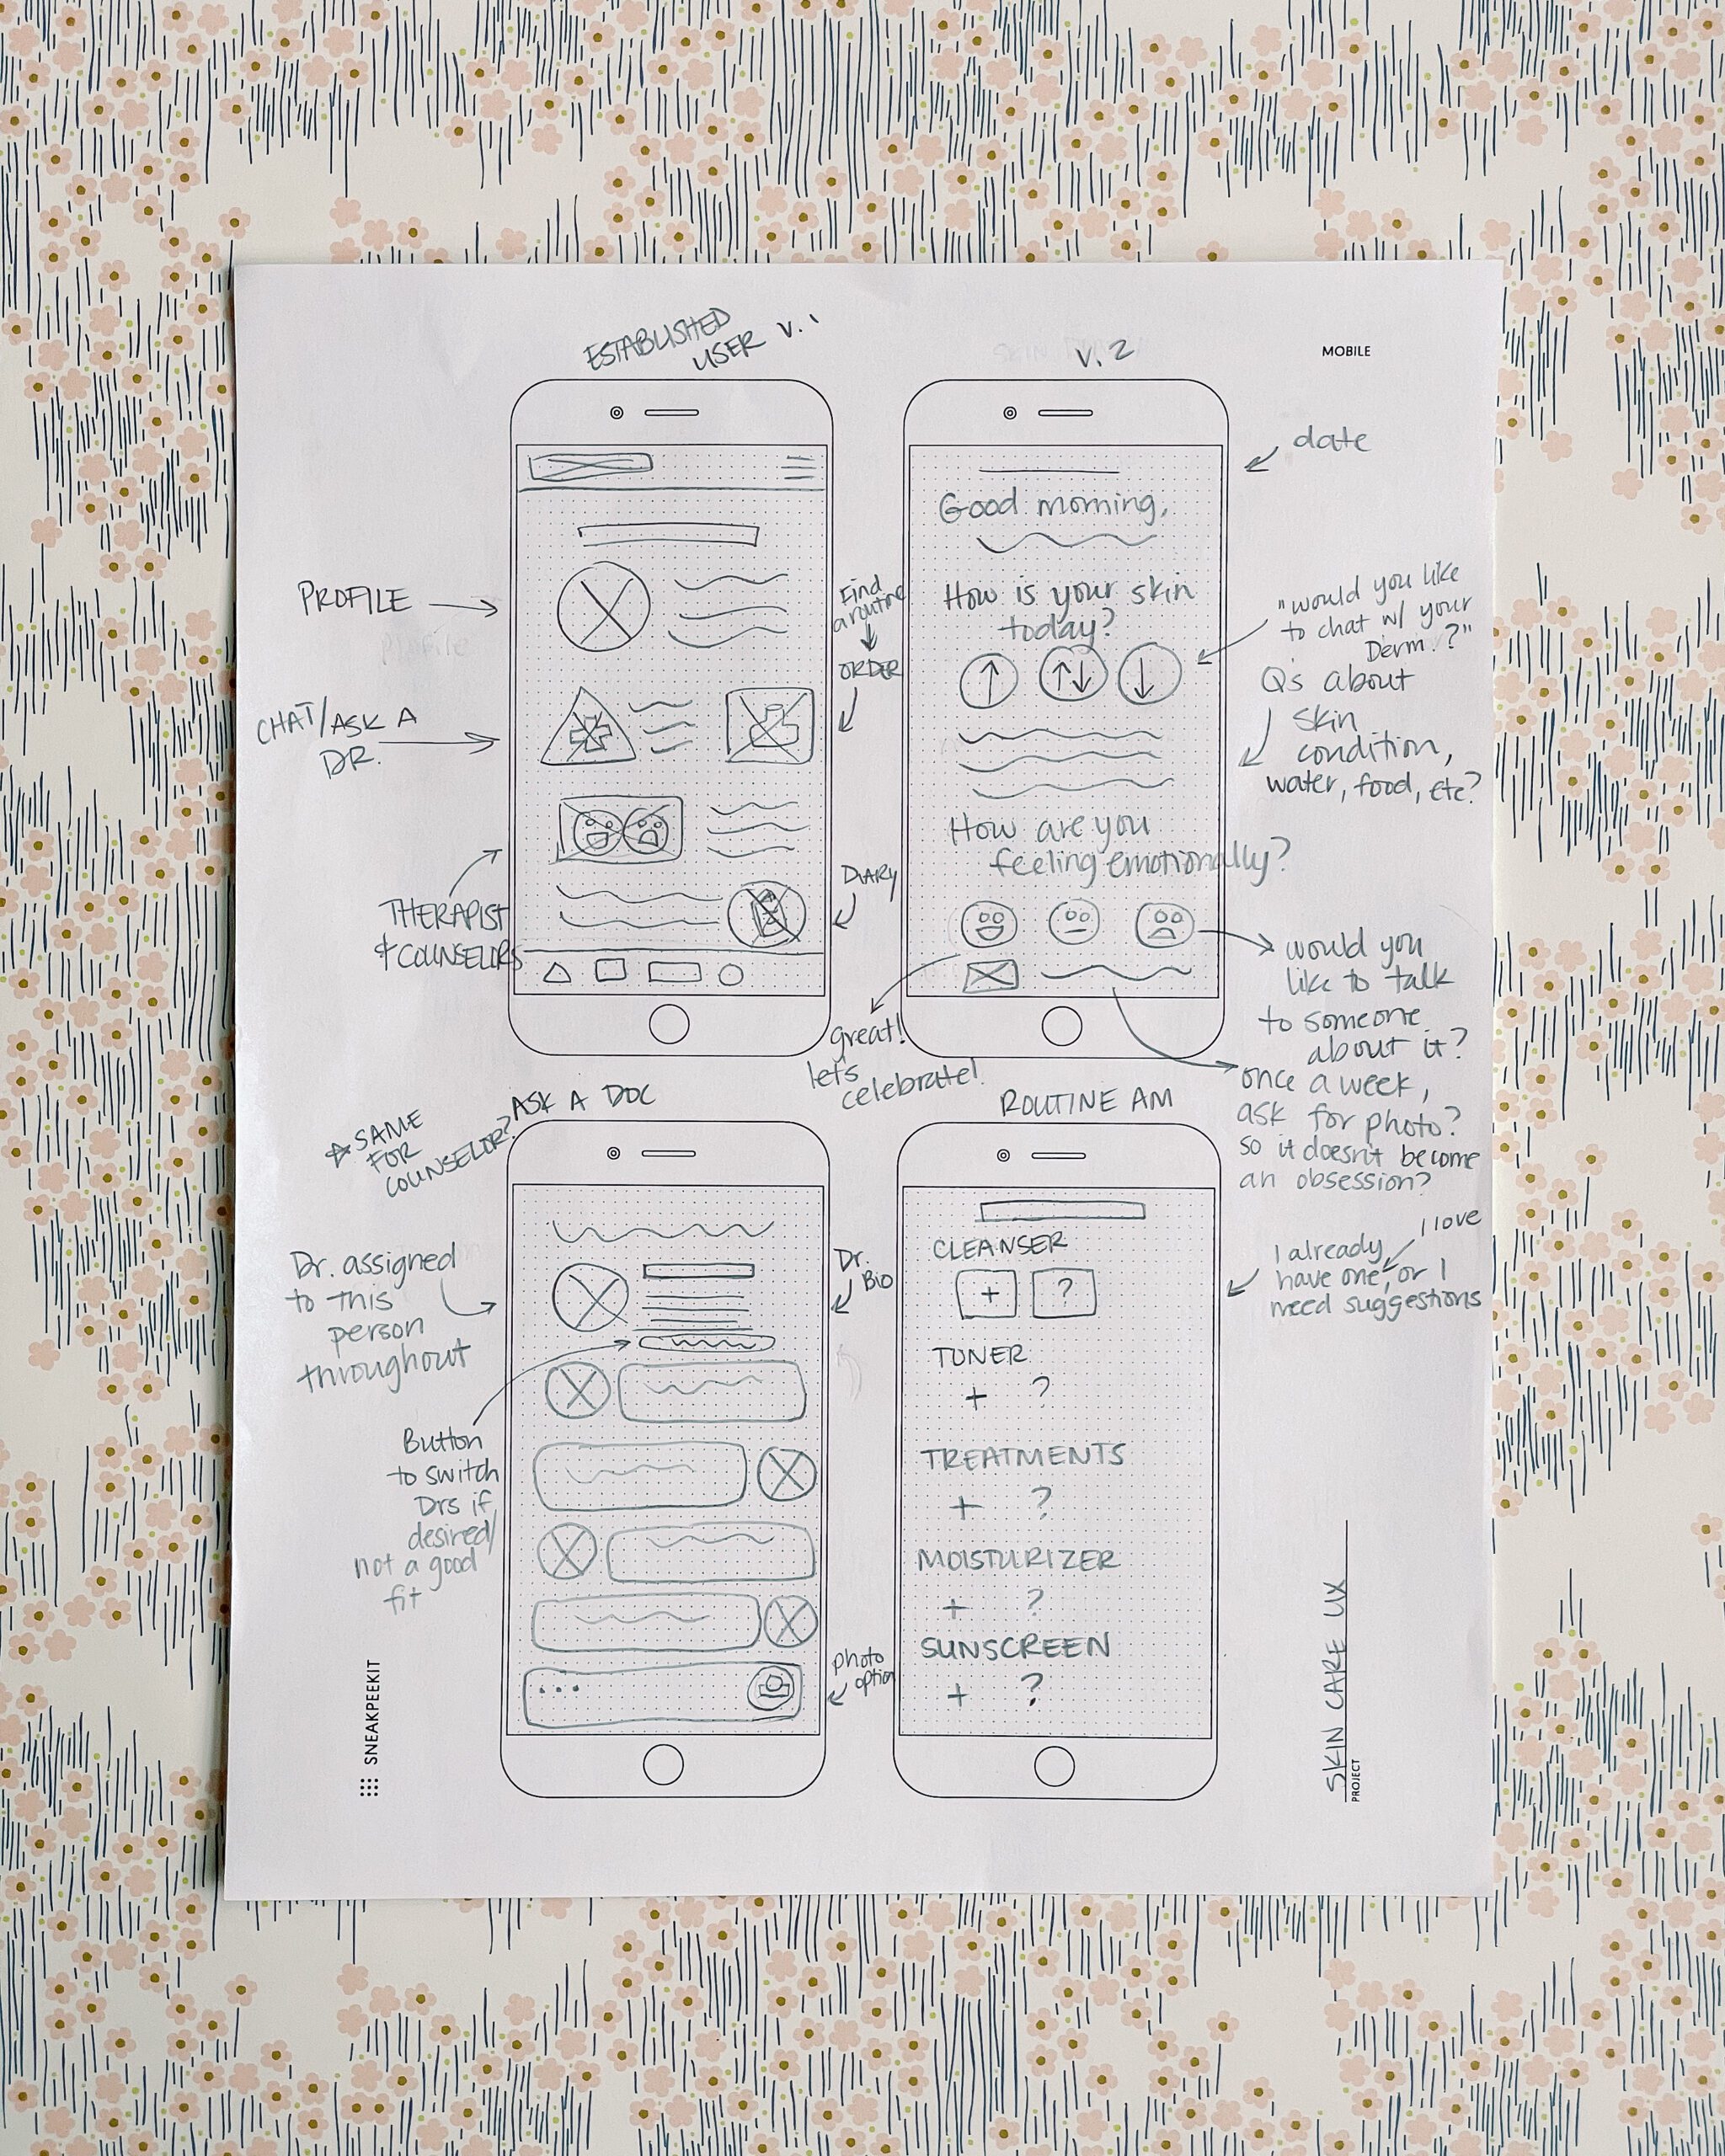 ESTABLISHED
USER V.1
V. 2
MOBILE
PROFILE
Profile
CHAT/ASK A
DR.
THERAPIST
& COUNSELORS
Find
a routine
ORDER
DIARY
date
Good morning,
How is your skin
today?
How are you
feeling emotionally?
"would you like
to chat w/ your
Derm.?"
Q's about
skin
condition,
water, food, etc?
great!
let's
celebrate!
would you
like to talk
to someone
about it?
once a week,
ask for photo?
so it doesn't become
an obsession?
ASK A DOC
SAME
FOR
COUNSELOR?
Dr. assigned
to this
person
throughout
Button
to switch
Drs if
desired/
not a good
fit
Dr.
Bio
photo
option
ROUTINE AM
CLEANSER
+ ?
TONER
+ ?
TREATMENTS
+ ?
MOISTURIZER
+ ?
SUNSCREEN
+ ?
I love
I already
have one, or I
need suggestions
SNEAKPEEKIT
SKIN CARE UX
PROJECT